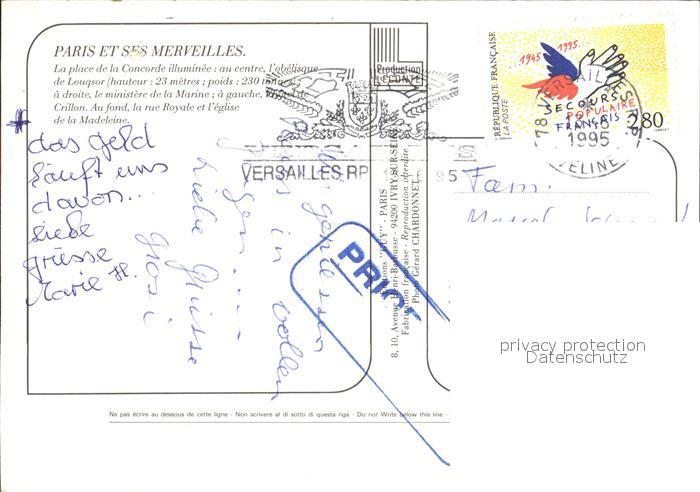 PARIS ET SES MERVEILLES.
La place de la Concorde illuminée : au centre, l'obélisque
de Louqsor (hauteur : 23 mètres ; poids : 230 tonnes)
à droite, le ministère de la Marine ; à gauche, l'hôtel de
Crillon. Au fond, la rue Royale et l'église
de la Madeleine.
das geld
läuft uns
davon..
liebe
griesse
Marie H.
genießen
in vollen
Zügen...
Liebe Grüsse
VERSAILLES RP
Production
LECONTE
Editions "GUY" - PARIS
8, 10, Avenue Henri-Barbusse - 94200 IVRY-SUR-SEINE
Fabrication française - Reproduction interdite
Photo Gérard CHARDONNET
PRIO
RÉPUBLIQUE FRANÇAISE
LA POSTE
1945 1995
SECOURS
POPULAIRE
FRANÇAIS
2,80
78 VERSAILLES R.P.
1995
YVELINES
Fam.
privacy protection
Datenschutz
Ne pas écrire au dessous de cette ligne - Non scrivere al di sotto di questa riga - Do not Write below this line -